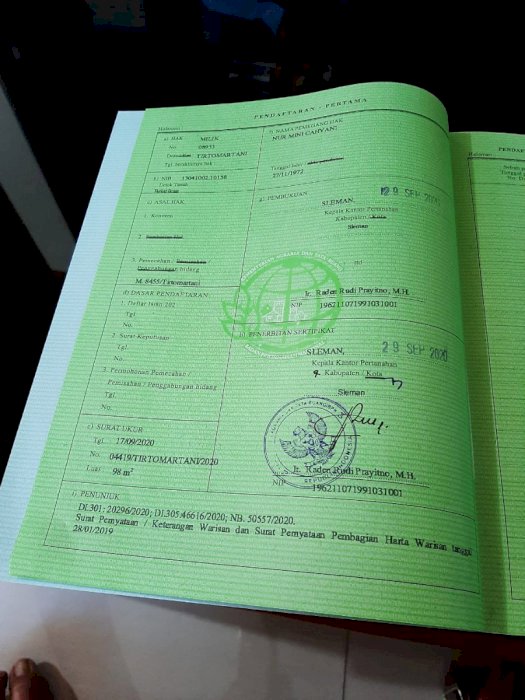 PENDAFTARAN - PERTAMA
Halaman :
a) HAK : MILIK
No. : 08933
Desa/ : TIRTOMARTANI
Tgl. berakhirnya hak
b) NIB : 13041002.10158
Letak Tanah
c) ASAL HAK
1. Konversi
2.
3. Pemecahan /
bidang
M. 8455/Tirtomartani
d) DASAR PENDAFTARAN
1. Daftar Isian 202
Tgl.
No.
2. Surat Keputusan
Tgl.
No.
3. Permohonan Pemecahan /
Pemisahan / Penggabungan bidang
Tgl.
No.
e) SURAT UKUR
Tgl. 17/09/2020
No. 04419/TIRTOMARTANI/2020
Luas 98 m²
f) NAMA PEMEGANG HAK
NUR MINI CAHYANI
Tanggal lahir /
27/11/1972
g) PEMBUKUAN
29 SEP 2020
SLEMAN,
Kepala Kantor Pertanahan
Kabupaten / Kota
Sleman
ttd
Ir. Raden Rudi Prayitno, M.H.
NIP 196211071991031001
h) PENERBITAN SERTIFIKAT
29 SEP 2020
SLEMAN,
Kepala Kantor Pertanahan
Kabupaten / Kota
Sleman
Ir. Raden Rudi Prayitno, M.H.
NIP 196211071991031001
i) PENUNJUK
DI.301: 20296/2020; DI.305:46616/2020; NB. 50557/2020.
Surat Pernyataan / Keterangan Warisan dan Surat Pernyataan Pembagian Harta Warisan tanggal
28/01/2019
Halaman :